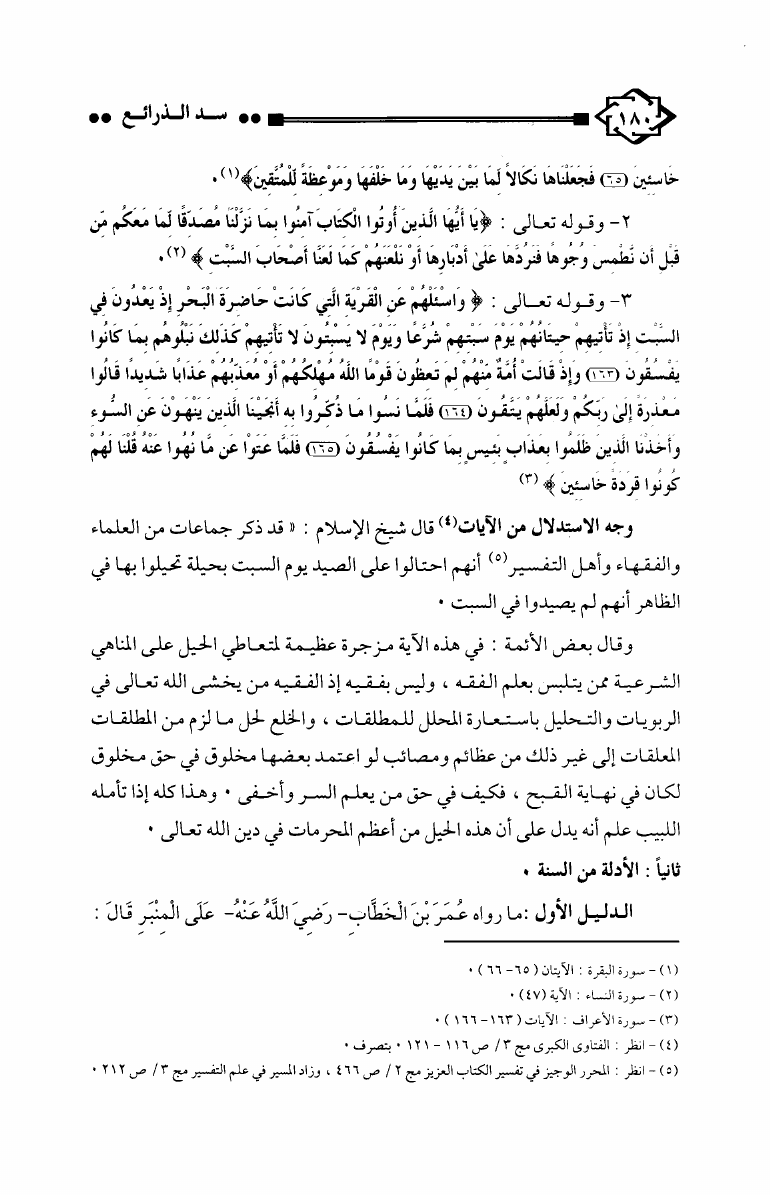 ١٨٠ •• سد الذرائع ••
خَاسِئِينَ (٦٥) فَجَعَلْنَاهَا نَكَالاً لِّمَا بَيْنَ يَدَيْهَا وَمَا خَلْفَهَا وَمَوْعِظَةً لِّلْمُتَّقِينَ﴾(١).
٢- وقوله تعالى : ﴿يَا أَيُّهَا الَّذِينَ أُوتُوا الْكِتَابَ آمِنُوا بِمَا نَزَّلْنَا مُصَدِّقًا لِّمَا مَعَكُم مِّن
قَبْلِ أَن نَّطْمِسَ وُجُوهًا فَنَرُدَّهَا عَلَىٰ أَدْبَارِهَا أَوْ نَلْعَنَهُمْ كَمَا لَعَنَّا أَصْحَابَ السَّبْتِ ﴾ (٢).
٣- وقوله تعالى : ﴿ وَاسْئَلْهُمْ عَنِ الْقَرْيَةِ الَّتِي كَانَتْ حَاضِرَةَ الْبَحْرِ إِذْ يَعْدُونَ فِي
السَّبْتِ إِذْ تَأْتِيهِمْ حِيتَانُهُمْ يَوْمَ سَبْتِهِمْ شُرَّعًا وَيَوْمَ لا يَسْبِتُونَ لا تَأْتِيهِمْ كَذَلِكَ نَبْلُوهُم بِمَا كَانُوا
يَفْسُقُونَ (١٦٣) وَإِذْ قَالَتْ أُمَّةٌ مِّنْهُمْ لِمَ تَعِظُونَ قَوْمًا اللَّهُ مُهْلِكُهُمْ أَوْ مُعَذِّبُهُمْ عَذَابًا شَدِيدًا قَالُوا
مَعْذِرَةً إِلَىٰ رَبِّكُمْ وَلَعَلَّهُمْ يَتَّقُونَ (١٦٤) فَلَمَّا نَسُوا مَا ذُكِّرُوا بِهِ أَنجَيْنَا الَّذِينَ يَنْهَوْنَ عَنِ السُّوءِ
وَأَخَذْنَا الَّذِينَ ظَلَمُوا بِعَذَابٍ بَئِيسٍ بِمَا كَانُوا يَفْسُقُونَ (١٦٥) فَلَمَّا عَتَوْا عَن مَّا نُهُوا عَنْهُ قُلْنَا لَهُمْ
كُونُوا قِرَدَةً خَاسِئِينَ ﴾ (٣)
وجه الاستدلال من الآيات(٤) قال شيخ الإسلام : « قد ذكر جماعات من العلماء
والفقهاء وأهل التفسير(٥) أنهم احتالوا على الصيد يوم السبت بحيلة تحيلوا بها في
الظاهر أنهم لم يصيدوا في السبت .
وقال بعض الأئمة : في هذه الآية مزجرة عظيمة لمتعاطي الحيل على المناهي
الشرعية ممن يتلبس بعلم الفقه ، وليس بفقيه إذ الفقيه من يخشى الله تعالى في
الربويات والتحليل باستعارة المحلل للمطلقات ، والخلع لحل ما لزم من المطلقات
المعلقات إلى غير ذلك من عظائم ومصائب لو اعتمد بعضها مخلوق في حق مخلوق
لكان في نهاية القبح ، فكيف في حق من يعلم السر وأخفى . وهذا كله إذا تأمله
اللبيب علم أنه يدل على أن هذه الحيل من أعظم المحرمات في دين الله تعالى .
ثانياً : الأدلة من السنة .
الدليل الأول :ما رواه عُمَرَ بْنَ الْخَطَّابِ- رَضِيَ اللَّهُ عَنْهُ- عَلَى الْمِنْبَرِ قَالَ :
(١)- سورة البقرة : الآيتان (٦٥- ٦٦) .
(٢)- سورة النساء : الآية (٤٧) .
(٣)- سورة الأعراف : الآيات (١٦٣- ١٦٦) .
(٤)- انظر : الفتاوى الكبرى مج ٣/ ص ١١٦- ١٢١ . بتصرف .
(٥)- انظر : المحرر الوجيز في تفسير الكتاب العزيز مج ٢/ ص ٤٦٦ ، وزاد المسير في علم التفسير مج ٣/ ص ٢١٢ .